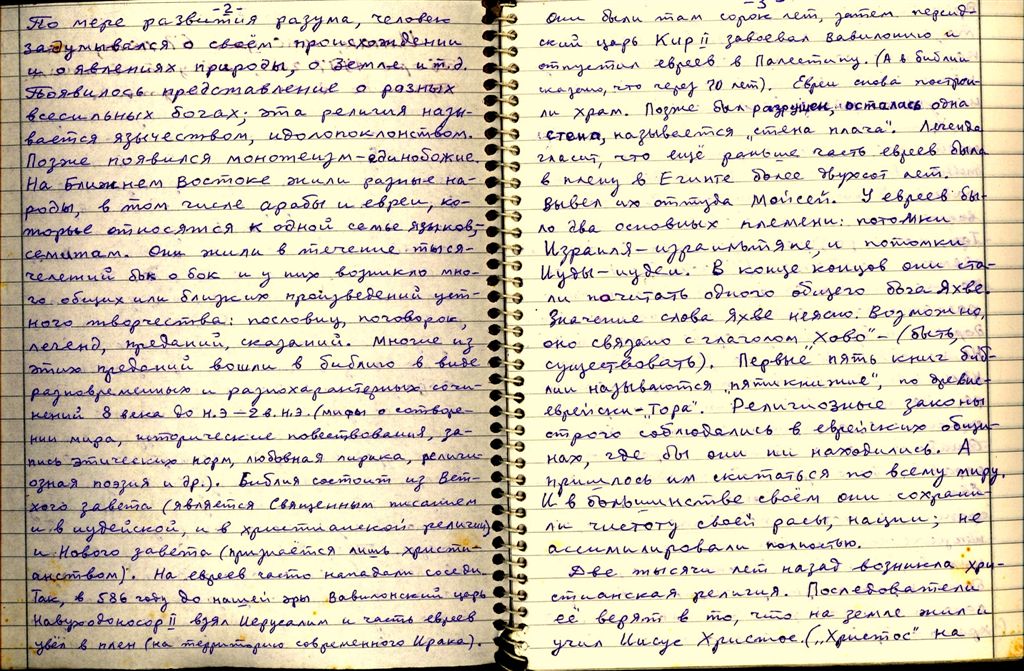 -2-
По мере развития разума, человек
задумывался о своём происхождении
и о явлениях природы, о Земле и т.д.
Появилось представление о разных
всесильных богах; эта религия назы-
вается язычеством, идолопоклонством.
Позже появился монотеизм-единобожие.
На Ближнем Востоке жили разные на-
роды, в том числе арабы и евреи, ко-
торые относятся к одной семье языков,-
семитам. Они жили в течение тыся-
челетий бок о бок и у них возникло мно-
го общих или близких произведений уст-
ного творчества: пословиц, поговорок,
легенд, преданий, сказаний. Многие из
этих преданий вошли в библию в виде
разновременных и разнохарактерных сочи-
нений 8 века до н.э – 2 в. н.э. (мифы о сотворе-
нии мира, исторические повествования, за-
пись этических норм, любовная лирика, религи-
озная поэзия и др.). Библия состоит из Вет-
хого завета (является Священным писанием
и в иудейской, и в христианской религии)
и Нового завета (признаётся лишь христи-
анством). На евреев часто нападали соседи.
Так, в 586 году до нашей эры Вавилонский царь
Навуходоносор II взял Иерусалим и часть евреев
увёл в плен (на территорию современного Ирака).
-3-
Они были там сорок лет, затем персид-
ский царь Кир II завоевал Вавилонию и
отпустил евреев в Палестину. (А в библии
сказано, что через 70 лет). Евреи снова построи-
ли храм. Позже был разрушен, осталась одна
стена, называется "стена плача". Легенда
гласит, что ещё раньше часть евреев была
в плену в Египте более двухсот лет.
Вывел их оттуда Мойсей. У евреев бы-
ло два основных племени: потомки
Израиля-израильтяне, и потомки
Иуды-иудеи. В конце концов они ста-
ли почитать одного общего бога Яхве.
Значение слова Яхве неясно. Возможно,
оно связано с глаголом "Хово" - (быть,
существовать). Первые пять книг биб-
лии называются "пятикнижие", по древне-
еврейски-"Тора". Религиозные законы
строго соблюдались в еврейских общи-
нах, где бы они ни находились. А
пришлось им скитаться по всему миру.
И в большинстве своём они сохрани-
ли чистоту своей расы, нации; не
ассимилировали полностью.
Две тысячи лет назад возникла хри-
стианская религия. Последователи
её верят в то, что на земле жил и
учил Иисус Христос. ("Христос" на